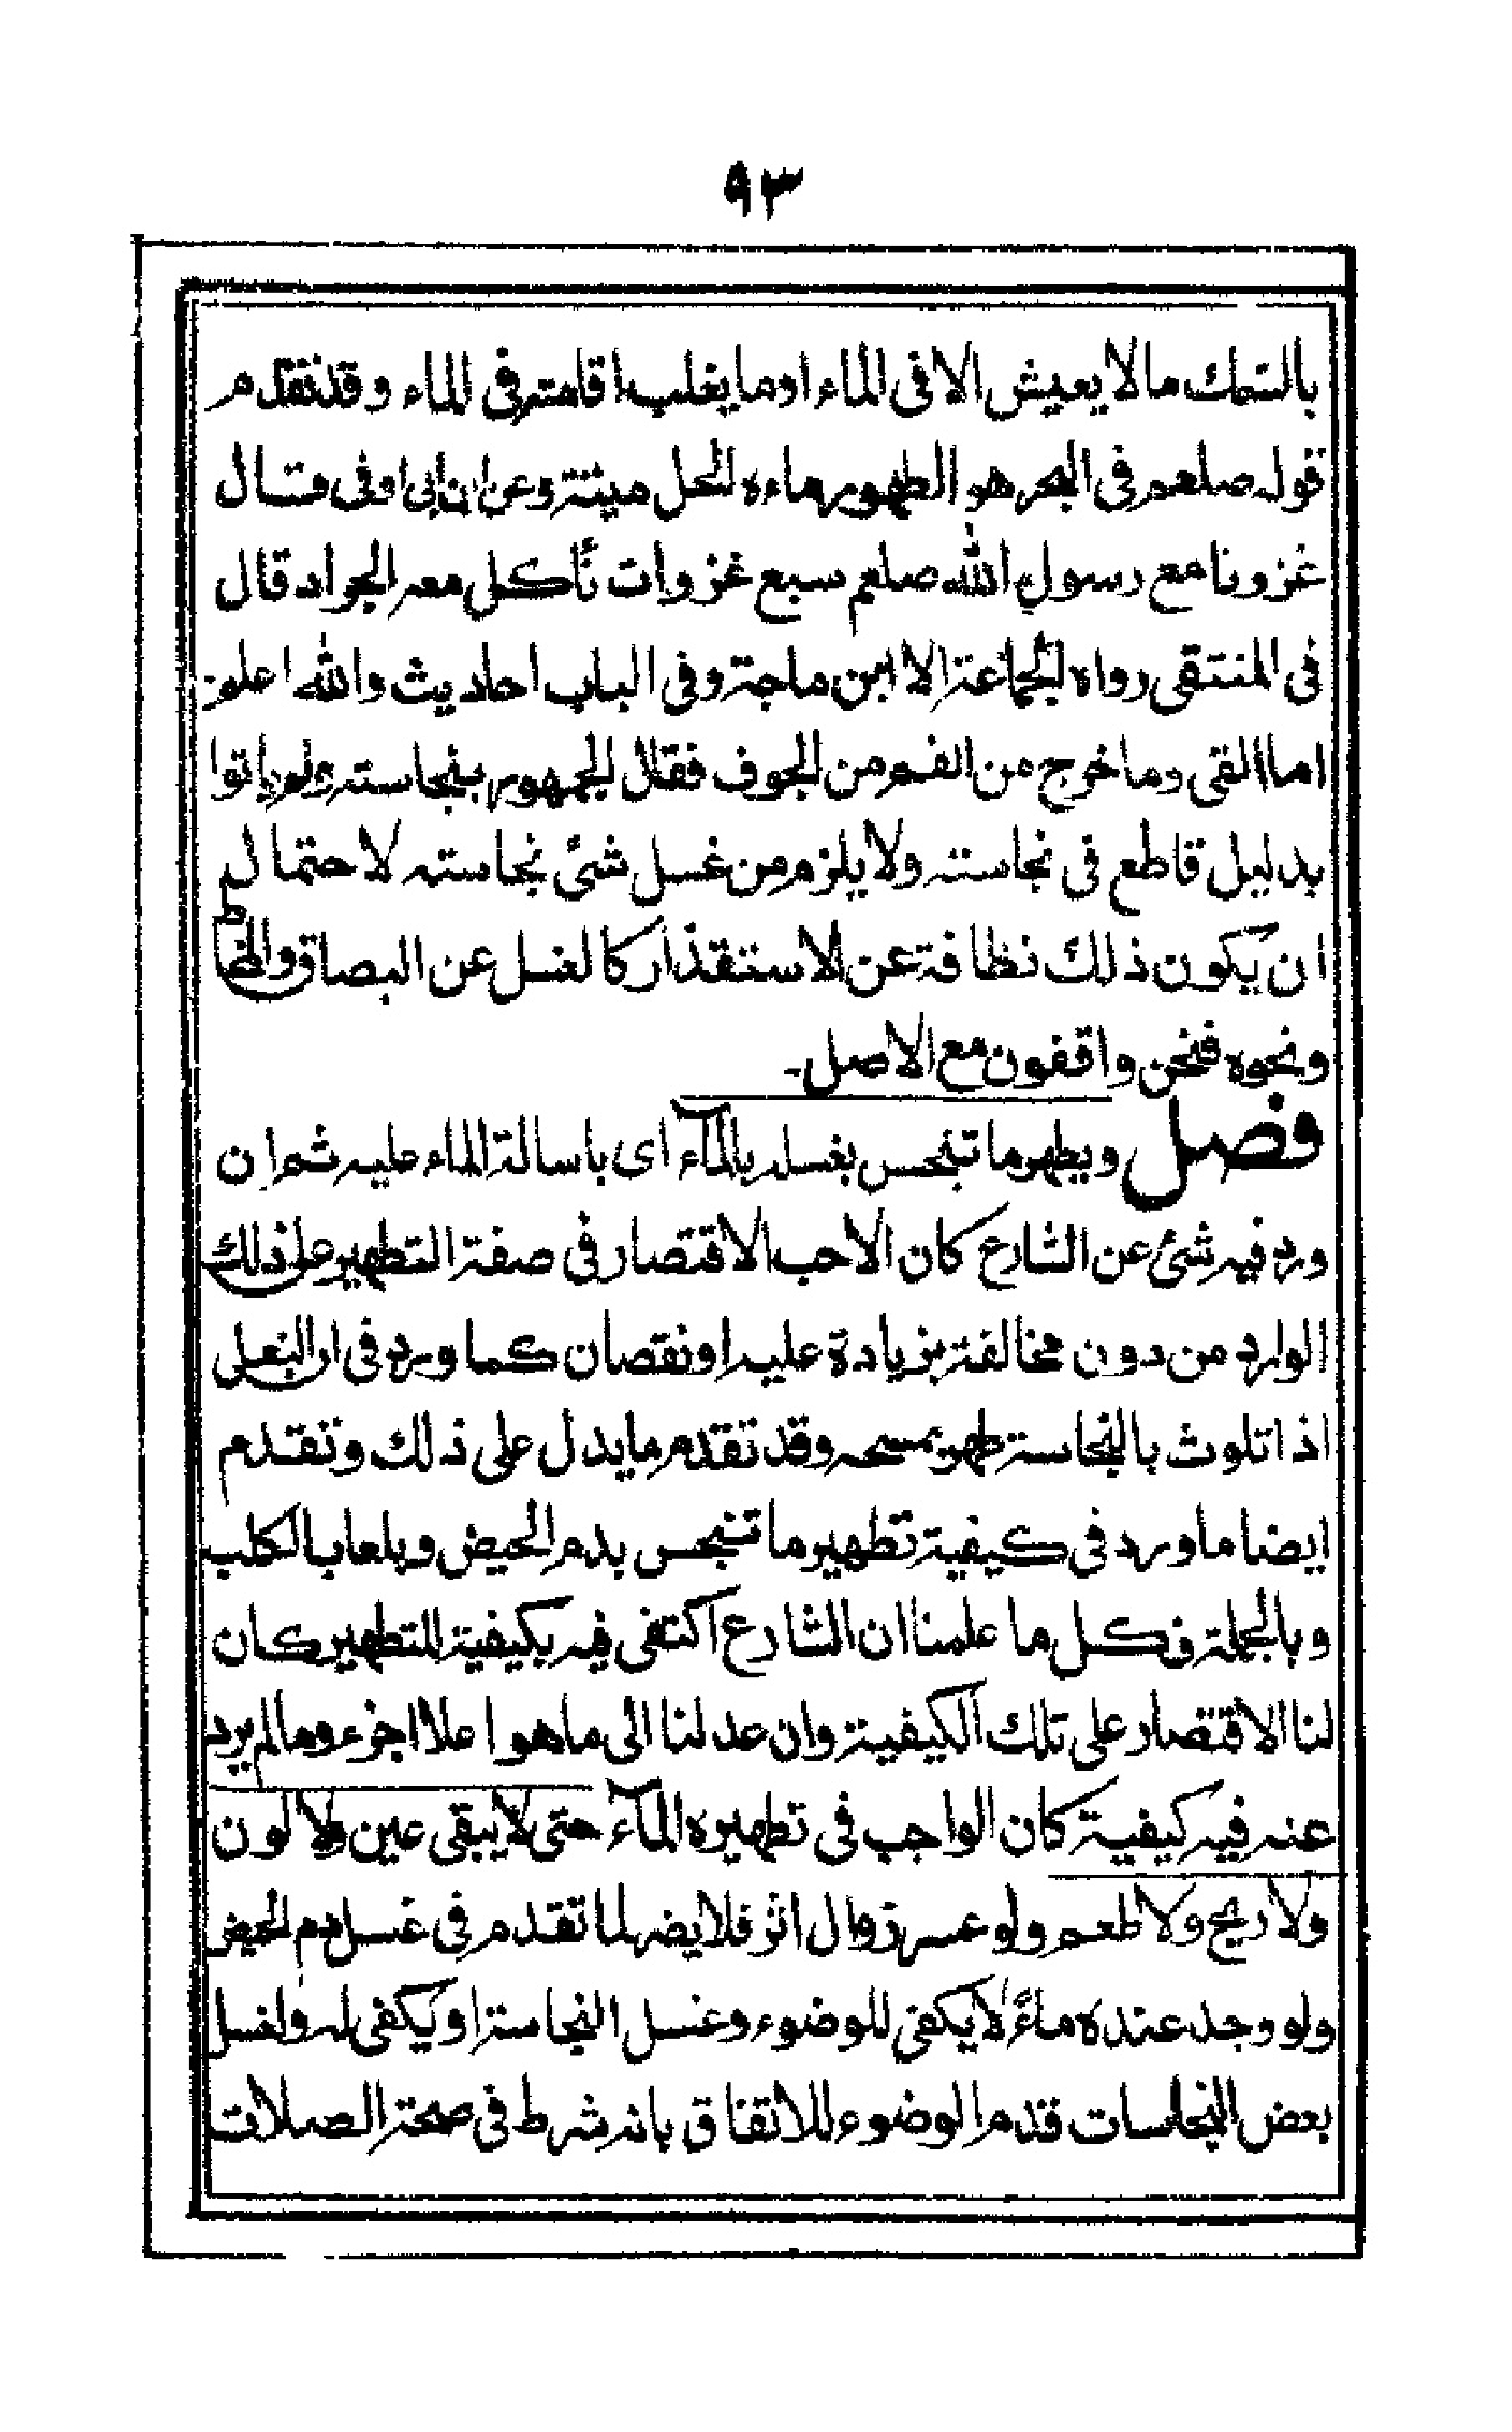 ٩٣
بالسمك مالا يعيش الا فى الماء او ما يغلب اقامته فى الماء وقد تقدم
قوله صلعم فى البحر هو الطهور ماءه الحل ميتته وعن ابن ابى اوفى قال
غزونا مع رسول الله صلعم سبع غزوات نأكل معه الجراد قال
فى المنتقى رواه الجماعة الا ابن ماجة وفى الباب احاديث والله اعلم
اما القى وما خرج من الفم من الجوف فقال الجمهور بنجاسته ولم ياتوا
بدليل قاطع فى نجاسته ولا يلزم من غسل شئ نجاسته لاحتمال
ان يكون ذلك نظافة عن الاستقذار كالغسل عن البصاق والمخاط
ونحوه فنحن واقفون مع الاصل۔
فصل ويطهر ما تنجس بغسله بالمآء اى باسالة الماء عليه ثم ان
ورد فيه شئ عن الشارع كان الاحب الاقتصار فى صفة التطهير على ذلك
الوارد من دون مخالفة بزيادة عليه او نقصان كما ورد فى ان النعل
اذا تلوث بالنجاسة طهر بمسحه وقد تقدم ما يدل على ذلك وتقدم
ايضا ما ورد فى كيفية تطهير ما تنجس بدم الحيض وبلعاب الكلب
وبالجملة فكل ما علمنا ان الشارع اكتفى فيه بكيفية للتطهير كان
لنا الاقتصار على تلك الكيفية وان عدلنا الى ما هو اعلا اجزء وما لم يرد
عنه فيه كيفية كان الواجب فى تطهيره المآء حتى لا يبقى عين ولا لون
ولا ريح ولا طعم ولو عسر زوال اثر فلا يضر لما تقدم فى غسل دم الحيض
ولو وجد عنده ماءً لا يكفى للوضوء وغسل النجاسة او يكفى له ولغسل
بعض النجاسات قدم الوضوء للاتفاق بانه شرط فى صحة الصلات